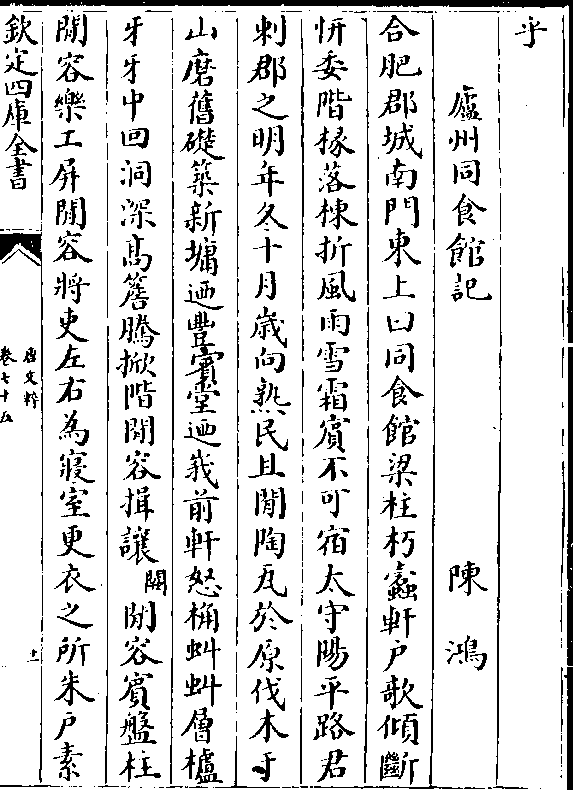 乎
廬州同食館記 陳鴻
合肥郡城南門東上曰同食館梁柱朽蠹軒户欹傾斷
恲委階椽落棟折風雨雪霜賓不可宿太守陽平路君
刺郡之明年冬十月歳向熟民且閒陶瓦於原伐木于
山磨舊礎築新墉迺豐賓堂迺峩前軒怒桷虬虬層櫨
牙牙中回洞深髙簷騰掀階閒容揖讓闗閒容賓盤柱
閒容樂工屏閒容將吏左右為寢室更衣之所朱户素
欽定四庫全書
唐文粹
卷七十五
十一